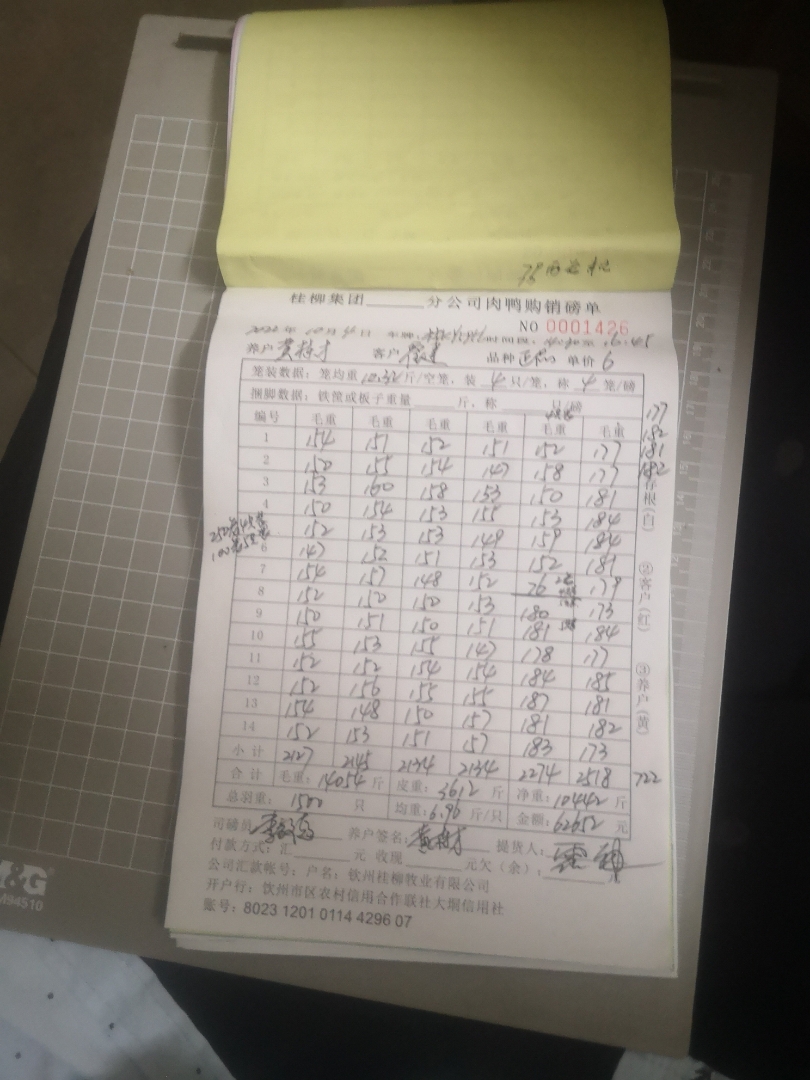 桂柳集团______分公司肉鸭购销磅单
NO 0001426
2022 年 10 月 4 日 车牌: 时间段: 至 16:45
养户 黄 客户 品种 单价 6
笼装数据: 笼均重 12.32 斤/空笼, 装 4 只/笼, 称 4 笼/磅
捆脚数据: 铁筐或板子重量______斤, 称______只/磅
177
182
181
182
编号 毛重 毛重 毛重 毛重 毛重 毛重
1 154 151 152 151 152 177
2 150 155 154 147 158 177
3 153 160 158 153 150 181
4 150 154 153 155 153 184
152 153 153 149 159 184
6 147 152 151 153 152 181
7 154 157 148 152 26 179
8 152 150 150 153 180 173
9 150 151 150 151 181 184
10 155 153 155 147 178 177
11 152 152 154 154 184 185
12 152 156 155 155 187 181
13 154 148 150 157 181 182
14 152 153 151 157 183 173
小计 2127 2145 2134 2134 2274 2518 722
合计 毛重: 14054 斤 皮重: 3612 斤 净重: 10442 斤
总羽重: 1500 只 均重: 6.96 斤/只 金额: 62652 元
司磅员: 养户签名: 黄 提货人:
付款方式: 汇______元 收现______元欠(余):______
公司汇款帐号: 户名: 钦州桂柳牧业有限公司
开户行: 钦州市区农村信用合作联社大垌信用社
账号: 8023 1201 0114 4296 07
存根(白)
②客户(红)
③养户(黄)
M&G
M94510